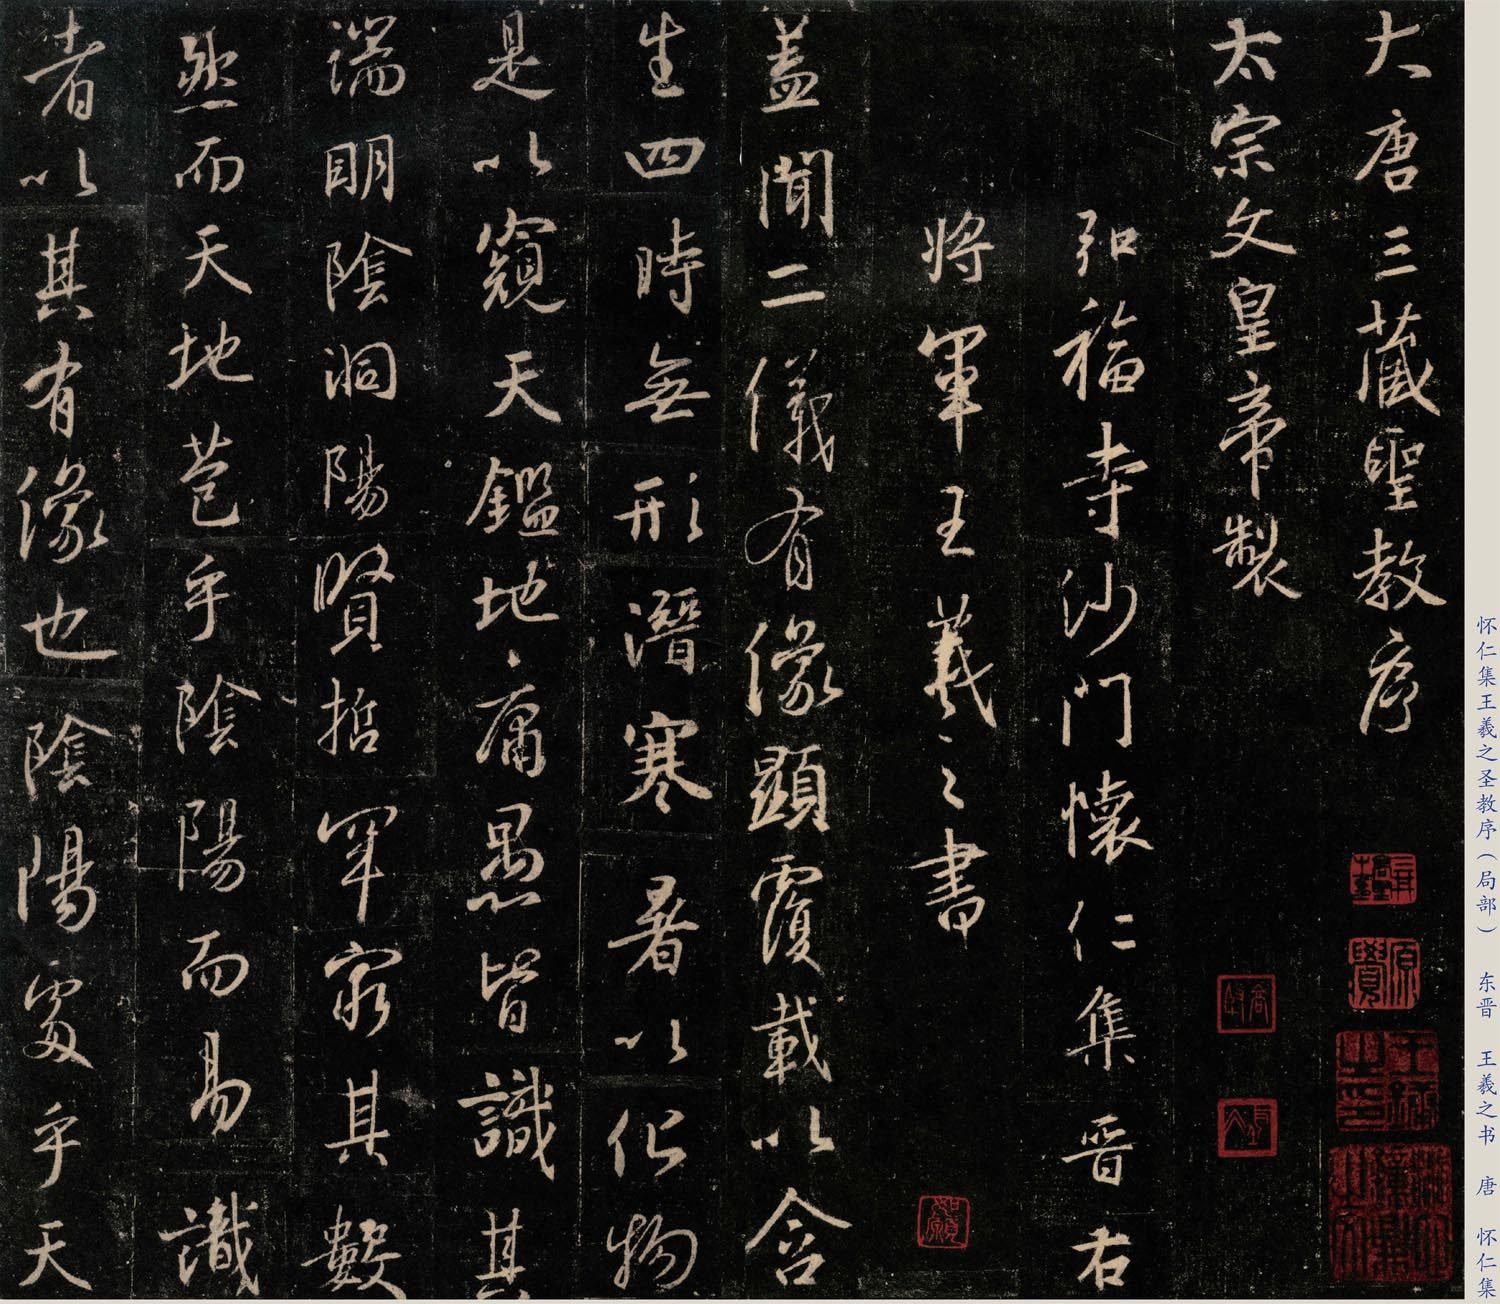 大唐三藏聖教序
太宗文皇帝製
弘福寺沙門懷仁集晉右
將軍王羲之書
蓋聞二儀有像顯覆載以含
生四時無形潛寒暑以化物
是以窺天鑑地庸愚皆識其
端明陰洞陽賢哲罕窮其數
然而天地苞乎陰陽而易識
者以其有像也陰陽處乎天
怀仁集王羲之圣教序（局部） 东晋 王羲之书 唐 怀仁集